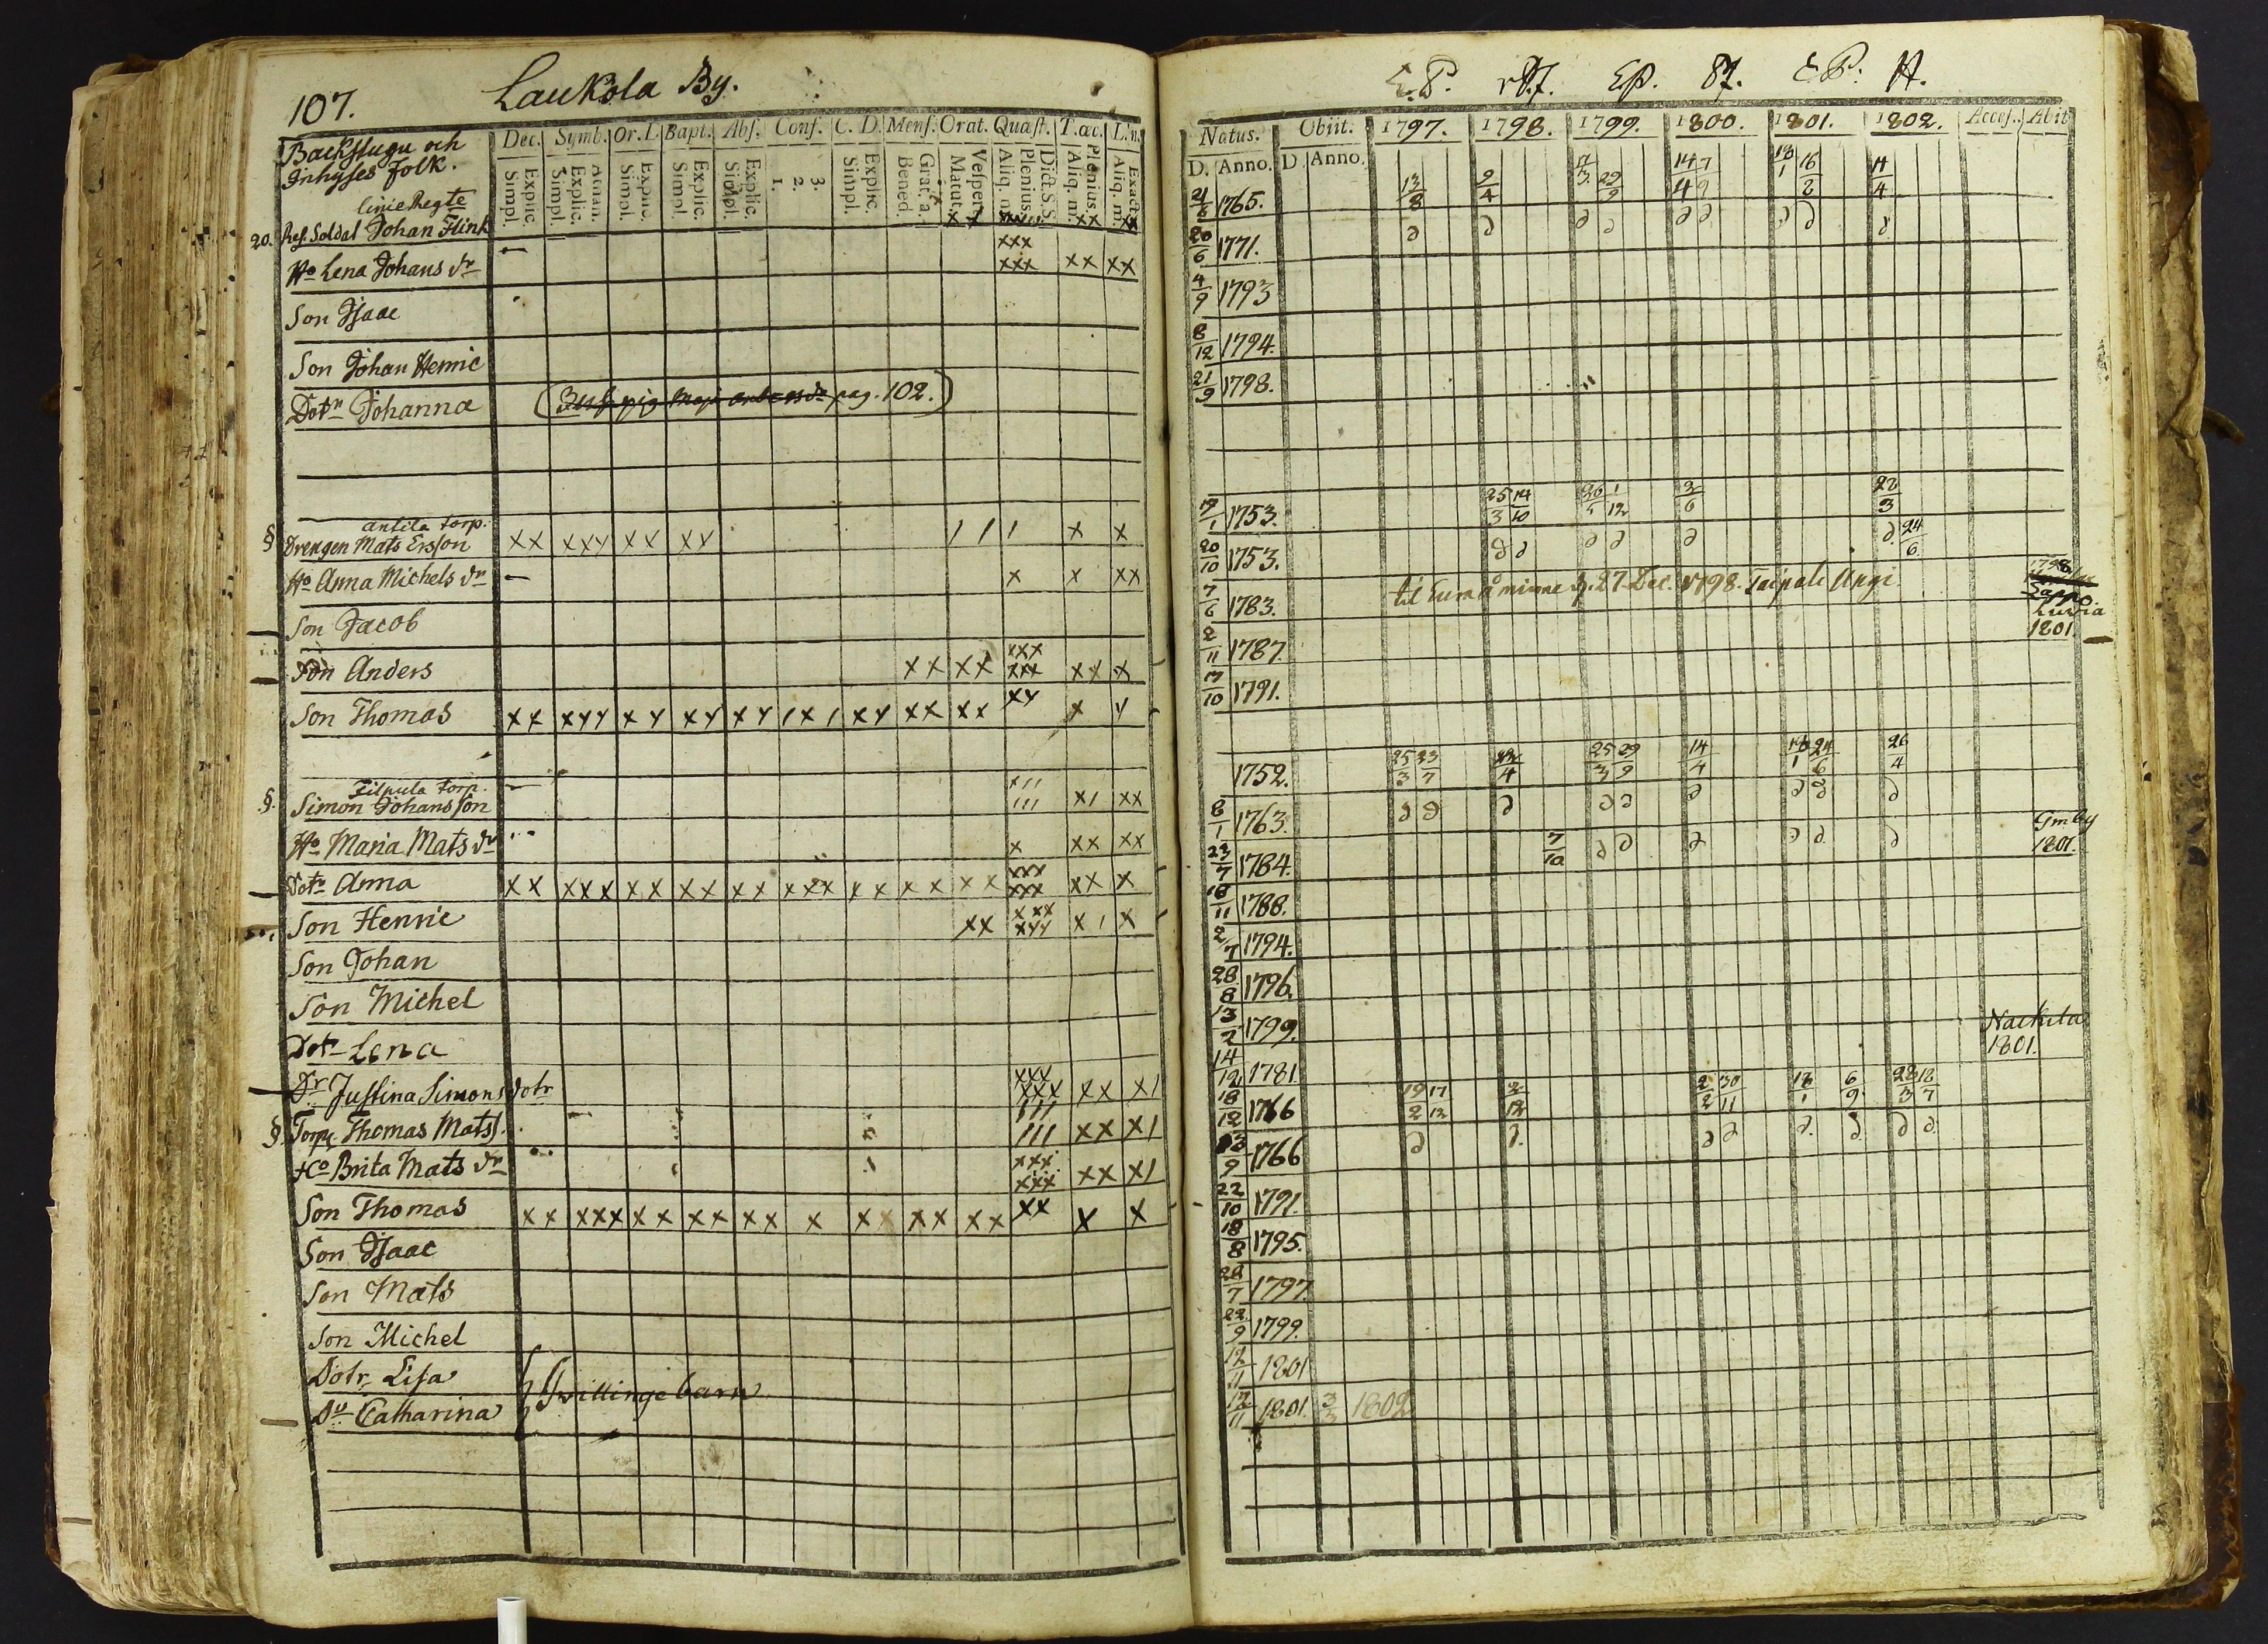 107. Laukola By.
E.P. E.P. E.P.
Backstugu och
Inhyses Folk.
Dec. Symb. Or. D. Bapt. Abs. Conf. C. D. Mens. Orat. Quæst. T. œc. L. n.
Simpl. Explic. Simpl. Explic. Athan. Simpl. Explic. Simpl. Explic. Simpl. Explic. 1. 2. 3. Simpl. Explic. Bened. Grat. a. Matut. Vesper. Aliq. m. Plenius. Dict. S.S. Aliq. m. Plenius. Aliq. m. Exact.
Natus. Obiit. 1797. 1798. 1799. 1800. 1801. 1802. Acces. Abit
D. Anno. D. Anno.
linie Regte
20. Ref. Soldat Johan Flink x x xx xx 21/6 1765. 13/8 9/4 14/4 7/9 18/1 16/8 11/4
Ho Lena Johans dr xxx xxx xx xx 20/6 1771.
Son Isaac 4/9 1793
Son Johan Henric 8/12 1794.
Dotr Johanna pag. 102.) 21/9 1798.
antila torp.
§ Drengen Mats Ersson xx xxy xx xy 1 1 1 x x 17/1 1753. 25/3 14/10 26/5 1/12 3/6 22/3
Ho Anna Michels dr x x xx 20/10 1753. 24/6
Son Jacob 7/6 1783. til Eura minne d. 27 Dec. 1798. Taipale Ungi 1798
Luvia
1801.
Son Anders xx xx xxx xxx xx x 2/11 1787.
Son Thomas xx xyy xy xy xy 1x1 xy xx xx xy x y 17/10 1791.
Tilpula torp.
§. Simon Johansson x11 111 x1 xx 1752. 25/3 23/7 4 25/3 29/9 14/4 18/1 24/6 26/4
Ho Maria Mats dr x xx xx 8/1 1763.
Dotr Anna xx xxx xx xx xx xxx xx xx xx xxx xxx xx x 23/7 1784. 7/10 Gmby
1801.
Son Henric xx xxx xyy x1 x 18/11 1788.
Son Johan 2/7 1794.
Son Michel 28/8 1796.
Dotr Lena 13/2 1799.
Dr Justina Simons dotr xxx xxx xx x1 14/12 1781 Nackila
1801.
§. Torp. Thomas Mats s. 111 111 xx x1 18/12 1766 19/2 17/12 2/12 2/2 30/11 18/1 6/9 28/3 18/7
Ho Brita Mats dr xxx xxx xx x1 13/9 1766
Son Thomas xx xxx xx xx xx x xx xx xx xx x x 22/10 1791.
Son Isaac 18/8 1795.
Son Mats 28/7 1797.
Son Michel 22/9 1799.
Dotr Lisa 12/11 1801
Tvillinge barn
Dr Catharina 12/11 1801. 3/3 1802